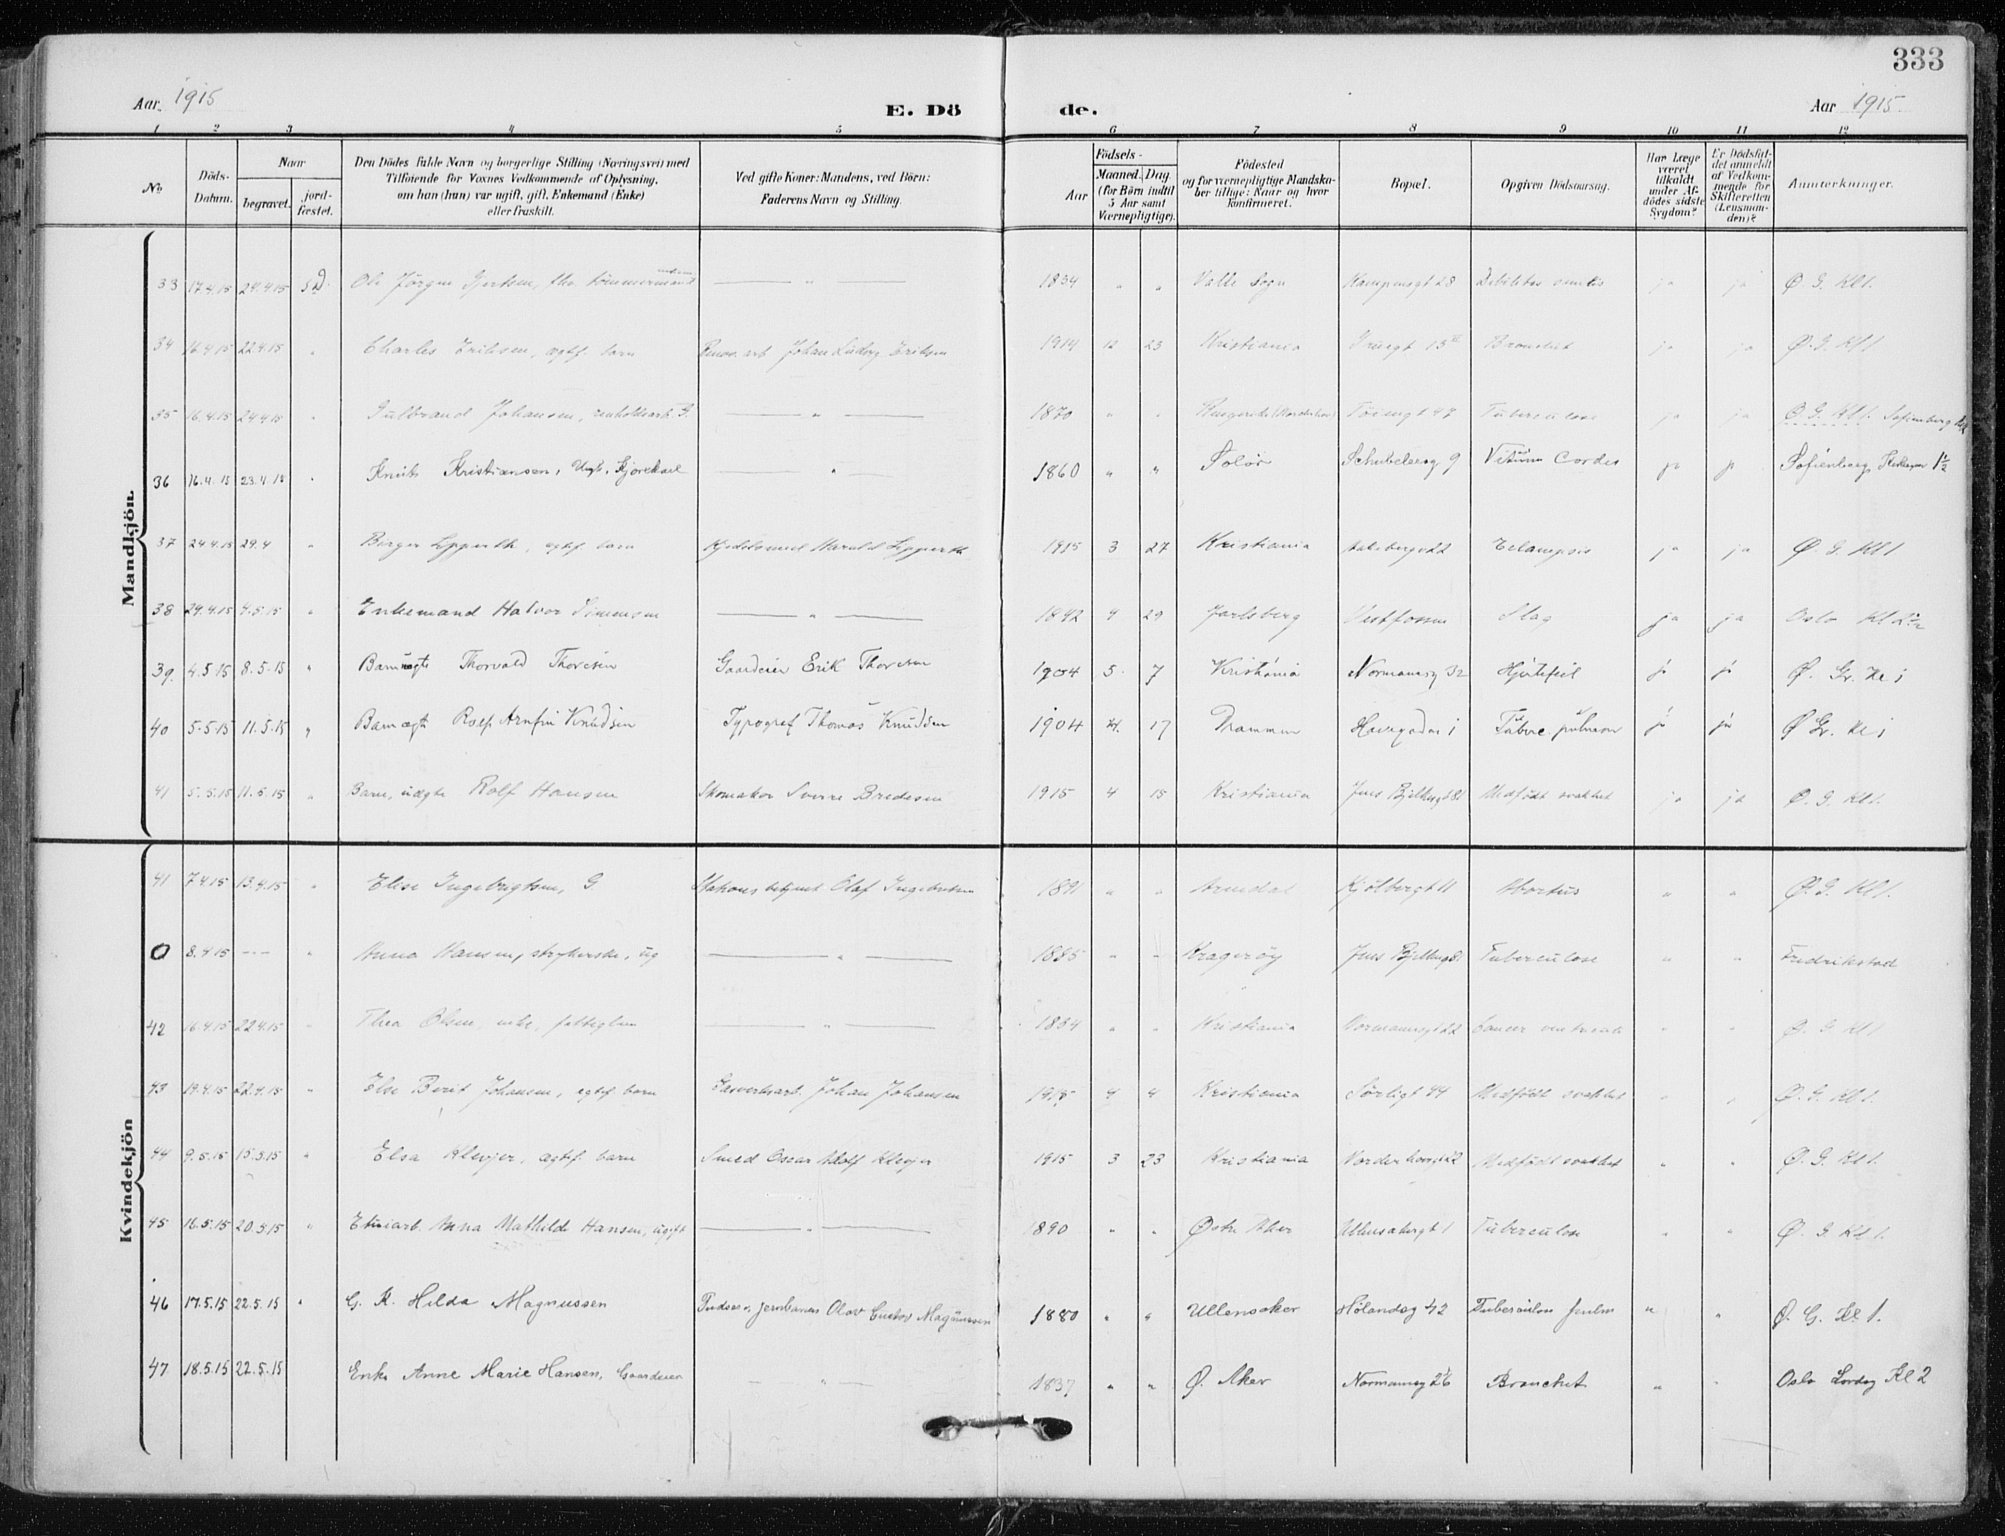 333
Aar 1915 E. Dö de. Aar 1915.
1 2 3 4 5 6 7 8 9 10 11 12
No Döds-Datum. Naar begravet. jord-fæstet. Den Dödes fulde Navn og borgerlige Stilling (Næringsvei) med Tilföiende for Voxnes Vedkommende af Oplysning, om han (hun) var ugift, gift, Enkemand (Enke) eller fraskilt. Ved gifte Koner: Mandens, ved Börn: Faderens Navn og Stilling. Aar Födsels- Maaned. Dag. (for Börn indtil 5 Aar samt Værnepligtige). Födested og for værnepligtige Mandskaber tillige: Naar og hvor konfirmeret. Bopæl. Opgiven Dödsaarsag. Har Læge været tilkaldt under Afdödes sidste Sygdom? Er Dödsfaldet anmeldt af Vedkommende for Skifteretten (Lensmanden)? Anmærkninger.
Mandkjön.
33 17.4.15 24.4.15 Ole Jörgen Gjertsen, — " — 1834 " " Valle Sogn Kampensgt 28 Debilitas senilis ja ja Ø. G. Kl 1.
34 16.4.15 22.4.15 " Charles Eriksen, ægtef. barn Renov. arb Johan Ludvig Eriksen 1914 12 23 Kristiania 15 Bronchit ja ja Ø. G. Kl 1
35 16.4.15 24.4.15 " Gulbrand Johansen, renholdsarb. G — " — 1870 " " Töiengt 47 Tuberculose ja ja Ø. G. Kl 1. Sofienberg
36 16.4.15 23.4.15 " Knut Kristiansen, Ugt. Kjørekarl — " — 1860 " " Solör Schubelersg 9 Vitium Cordis ja ja Sofienberg 1½
37 24.4.15 29.4 " Birger Lipperth, ægtef. barn Harald Lipperth 1915 3 27 Kristiania 22 Eclampsis ja ja Ø. G. Kl 1
38 29.4.15 4.5.15 " Enkemand Halvor Simensen — " — 1842 4 29 Jarlsberg Vestfossen Slag ja ja Oslo Kl 2½
39. 4.5.15 8.5.15 " Barn ægte Thorvald Thoresen Gaardeier Erik Thoresen 1904 5. 7 Kristiania Normannsg 32 Hjertefeil ja ja Ø. Gr. Kl 1
40 5.5.15 11.5.15 " Barn ægt Rolf Arnfin Knudsen Typograf Thomas Knudsen 1904 17 Drammen Havegaden 1 Tuberc pulmon ja ja Ø Gr. Kl 1
41 5.5.15 11.5.15 " Barn, uægte Rolf Hansen Skomaker Sverre Bredesen 1915 4 15 Kristiania Jens Bjelkesgt Medfödt svakhet ja ja Ø. G. Kl 1.
Kvindekjön
41 7.4.15 13.4.15 " Elise Ingebrigtsen, G. Stations betjent Olaf Ingebretsen 1891 " " Arendal Kjölbergt 11 Abortus " " Ø. G. Kl 1.
0 8.4.15 — " Anna Hansen, strykerske, ug — " — 1885 " " Kragerøy Jens Bjelkesgt Tuberculose " " Fredrikstad
42 16.4.15 22.4.15 " Thea Olsen, enke, fattiglem — " — " " Kristiania Normannsgt 22 Cancer ventriculi " " Ø. G. Kl 1
43 19.4.15 22.4.15 " Else Berit Johansen, ægtef. barn Gasverksarb. Johan Johansen 1915 4 4 Kristiania Sörligt 44 Medfödt svakhet " " Ø. G. Kl 1.
44 9.5.15 15.5.15 " Elsa Klevjer, ægtef. barn Smed Oscar Adolf Klevjer 1915 3 23 Kristiania Medfödt svakhet " " Ø. G. Kl 1.
45 16.5.15 20.5.15 " Etuiarb Anna Mathilde Hansen, ugift — " — 1890 " " Østre Aker 1 Tuberculose " " Ø. G. Kl 1.
46 17.5.15 22.5.15 " G. K. Hilda Magnussen Pudser v. jernbanen Olav Gustav Magnussen 1880 " " Ullensaker Hølandsg 42 Tuberculose pulm " " Ø. G. Kl 1.
47 18.5.15 22.5.15 Enke Anne Marie Hansen, Gaardeier — " — 1837 " " Ø. Aker Normannsg Bronchit " " Oslo Lørdag Kl 2